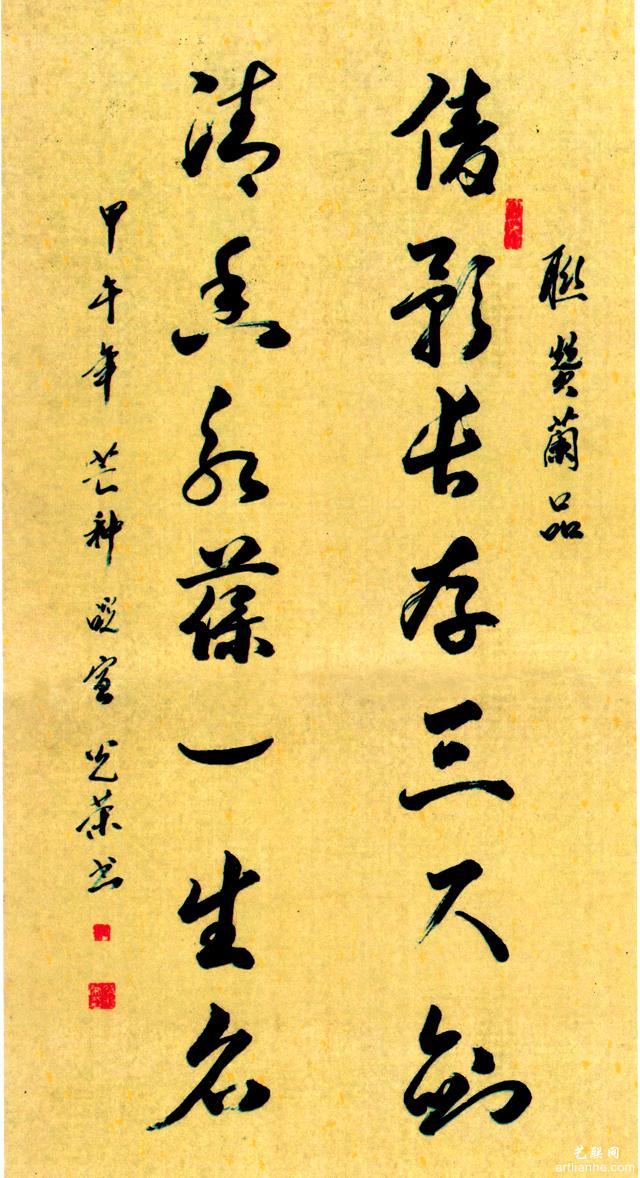 聯赞蘭品
倩影长存三尺剑
清香永葆一生名
甲午年 芒种 宣 光荣书
艺联网
artlianne.com